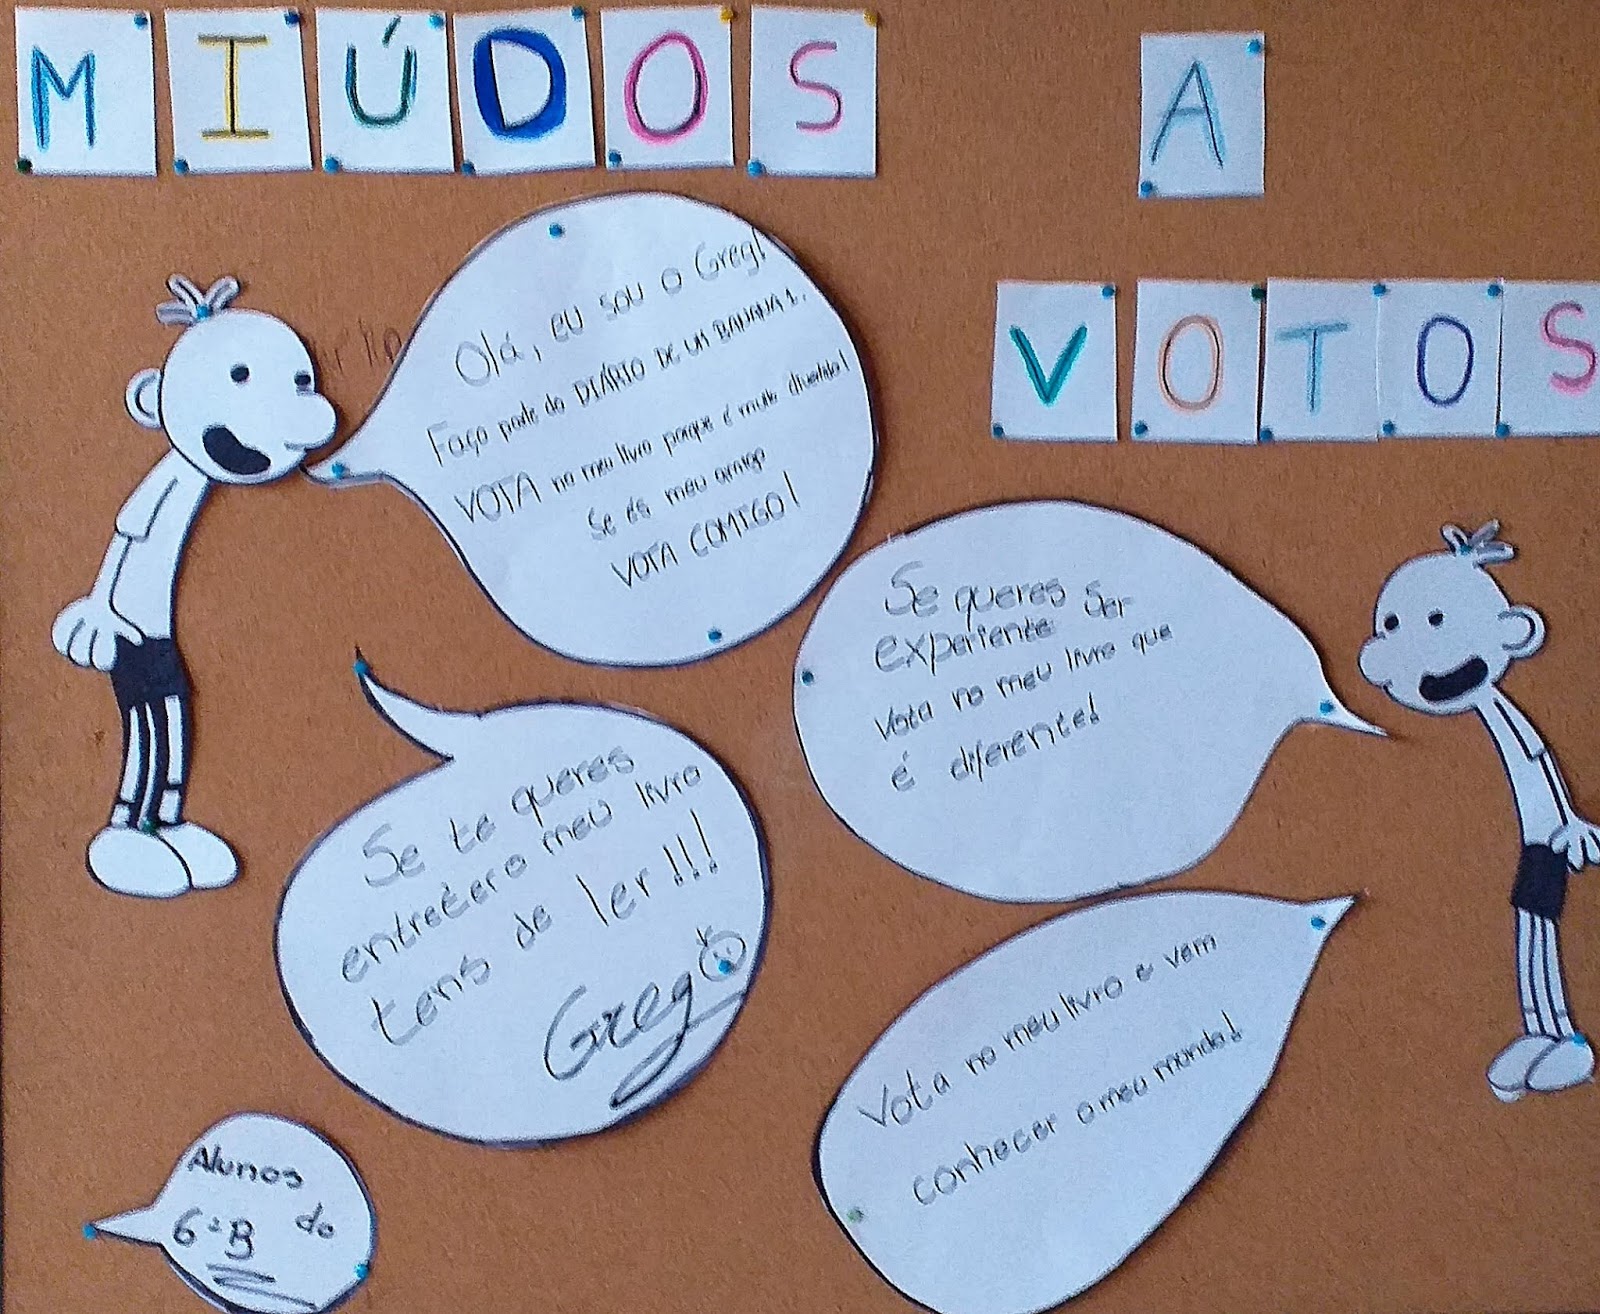 MIÚDOS A
VOTOS
Olá, eu sou o Greg!
Faço parte do DIÁRIO DE UM BANANA 1.
VOTA no meu livro porque é muito divertido!
Se és meu amigo
VOTA COMIGO!
Se queres ser
experiente
vota no meu livro que
é diferente!
Se te queres
entreter o meu livro
tens de ler!!!
Greg
Vota no meu livro e vem
conhecer o meu mundo!
Alunos do
6ºB